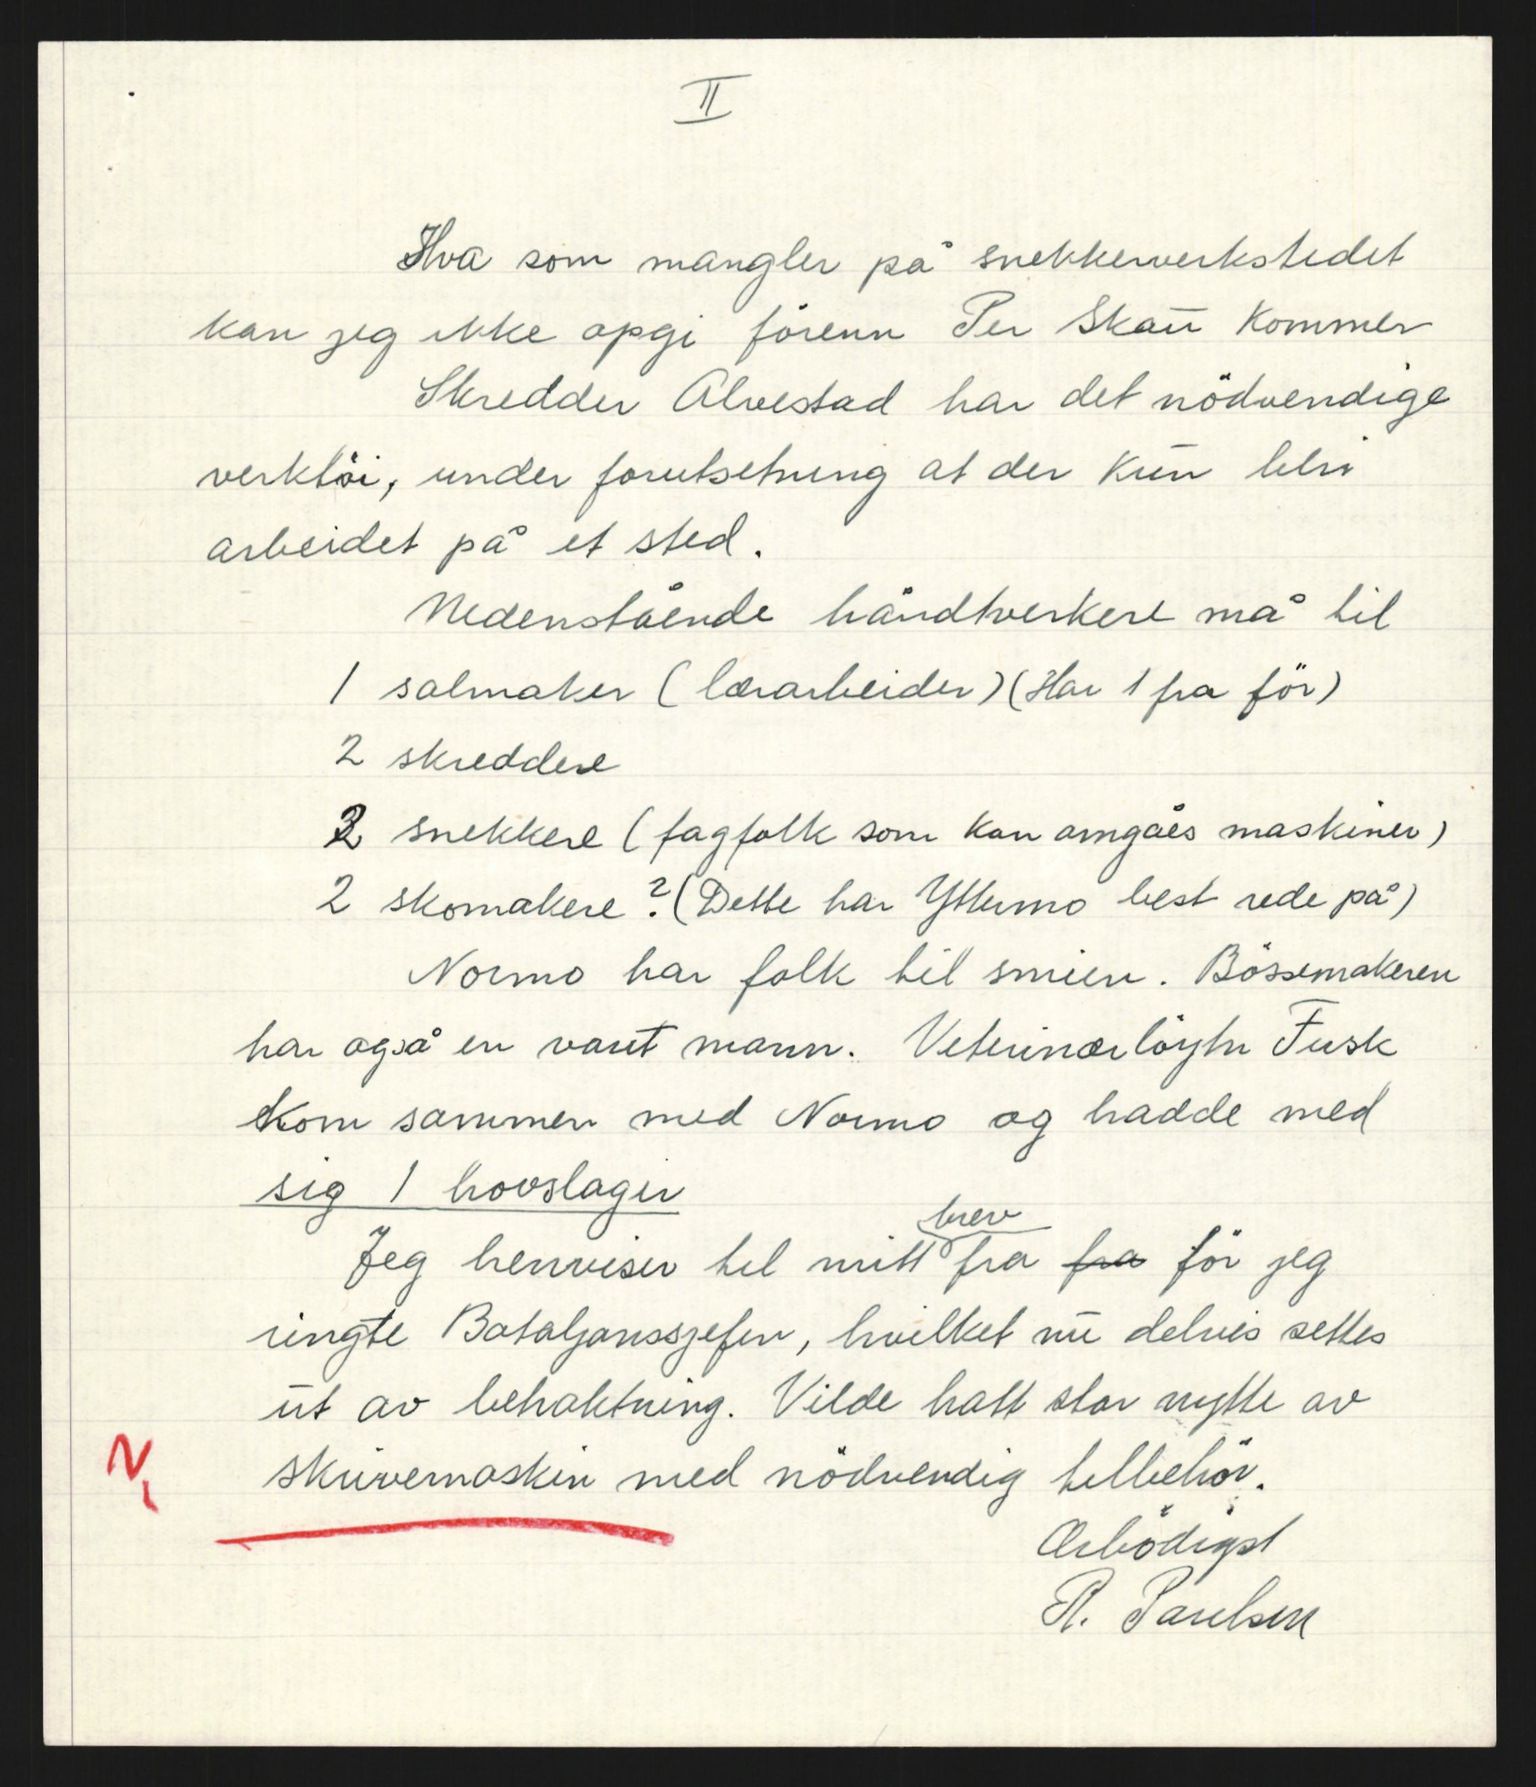 II
Hva som mangler på snekkerverkstedet
kan jeg ikke opgi förenn Per Skau kommer
Skredder Alvestad har det nödvendige
verktöi, under forutsetning at der kun blir
arbeidet på et sted.
Nedenstående håndtverkere må til
1 salmaker (lærarbeider) (Har 1 fra för)
2 skreddere
2 snekkere (fagfolk som kan omgåes maskiner)
2 skomakere? (Dette har Yttermo best rede på)
Normo har folk til smien. Bössemakeren
har også en vant mann. Veterinærlöytn Fusk
kom sammen med Normo og hadde med
sig 1 hovslager
Jeg henviser til mitt brev fra fra för jeg
ringte Bataljonssjefen, hvilket nu delvis settes
ut av betraktning. Vilde hatt stor nytte av
skrivemaskin med nödvendig tilbehör.
Ærbödigst
R. Paulsen